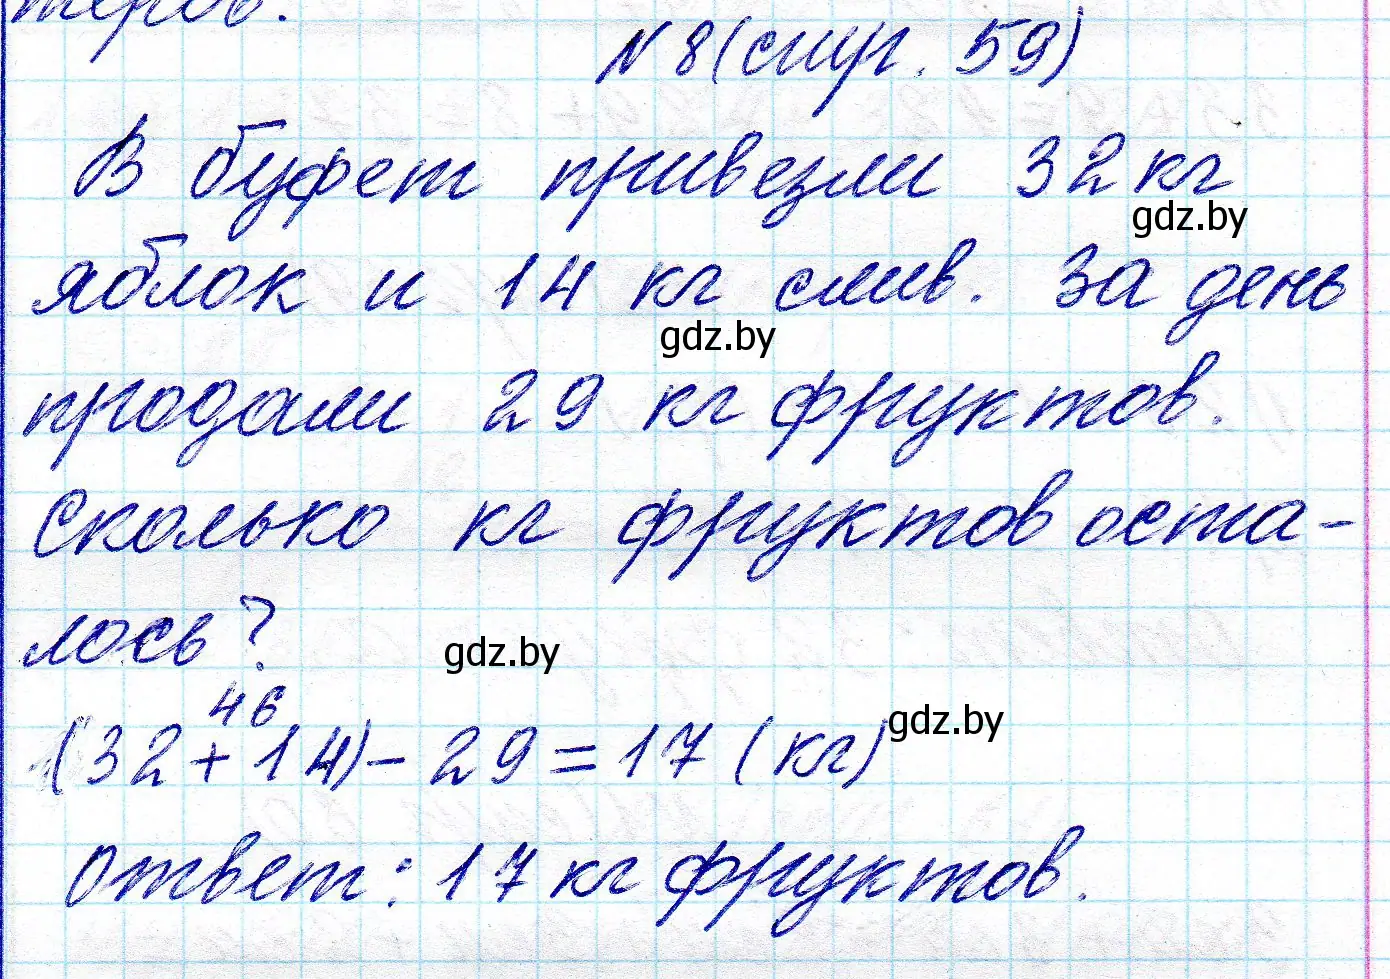 теров.
N 8 (стр. 59)
В буфет привезли 32 кг
gdz.by
яблок и 14 кг слив. За день
gdz.by
продали 29 кг фруктов.
Сколько кг фруктов оста-
лось?
gdz.by
46
(32+14)-29=17 (кг)
gdz.by
Ответ: 17 кг фруктов.